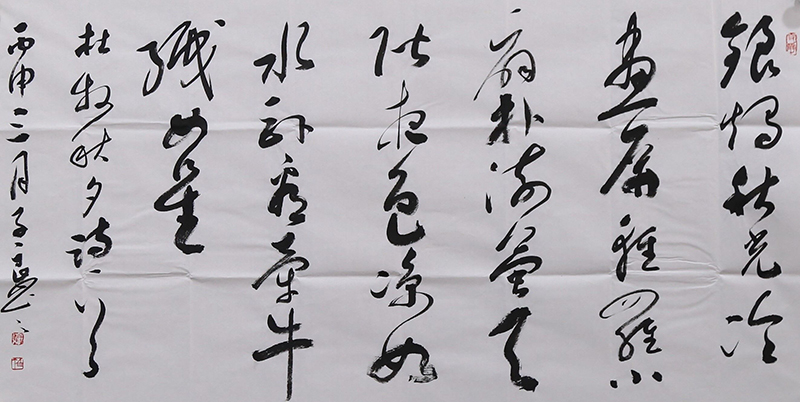 銀燭秋光冷
畫屏輕羅小
扇扑流螢天
階夜色涼如
水卧看牽牛
織女星
杜牧秋夕詩一首
丙申三月子